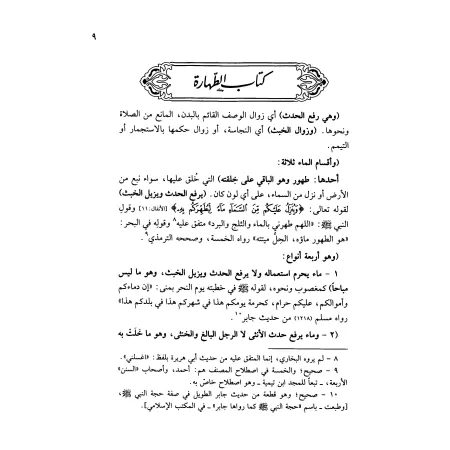 ٩
كتاب الطهارة
(وهي رفع الحدث) أي زوال الوصف القائم بالبدن، المانع من الصلاة
ونحوها. (وزوال الخبث) أي النجاسة، أو زوال حكمها بالاستجمار أو
التيمم.
(وأقسام الماء ثلاثة:
أحدها: طهور وهو الباقي على خِلقته) التي خُلق عليها، سواء نبع من
الأرض أو نزل من السماء، على أي لون كان. (يرفع الحدث ويزيل الخبث)
لقوله تعالى: ﴿وَيُنَزِّلُ عَلَيْكُم مِّنَ السَّمَاءِ مَاءً لِّيُطَهِّرَكُم بِهِ﴾ [الأنفال: ١١] وقولِ
النبي ﷺ: «اللهم طهرني بالماء والثلج والبرد» متفق عليه٨ وقولِه في البحر:
«هو الطهور ماؤه، الحِلُّ ميتته» رواه الخمسة، وصححه الترمذي٩.
(وهو أربعة أنواع:
١ - ماء يحرم استعماله ولا يرفع الحدث ويزيل الخبث، وهو ما ليس
مباحاً) كمغصوب ونحوه، لقوله ﷺ في خطبته يوم النحر بمنى: «إن دماءكم
وأموالكم، عليكم حرام، كحرمة يومكم هذا في شهركم هذا في بلدكم هذا»
رواه مسلم (١٢١٨) من حديث جابر١٠.
(٢ - وماء يرفع حدث الأنثى لا الرجل البالغ والخنثى، وهو ما خَلَتْ به
٨ - لم يروه البخاري، إنما المتفق عليه من حديث أبي هريرة بلفظ: «اغسلني».
٩ - صحيح؛ والخمسة في اصطلاح المصنف هم: أحمد، وأصحاب «السنن»
الأربعة، ـ تبعاً للمجد ابن تيمية ـ وهو اصطلاح خاصّ به.
١٠ - صحيح؛ وهو قطعة من حديث جابر الطويل في صفة حجة النبي ﷺ،
[وطبعت ـ باسم «حجة النبي ﷺ كما رواها جابر» ـ في المكتب الإسلامي].